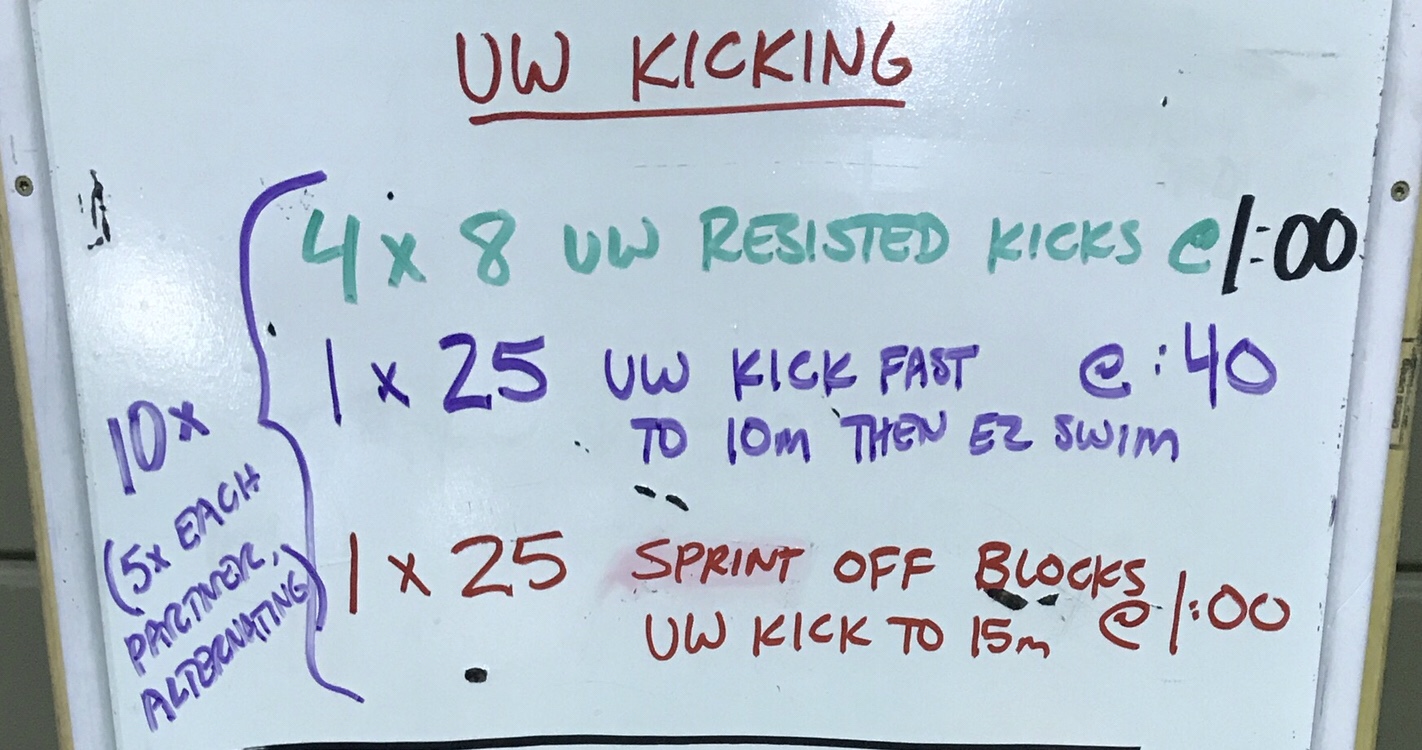 UW KICKING
4 x 8 UW RESISTED KICKS @ 1:00
1 x 25 UW KICK FAST @ :40
TO 10m THEN EZ SWIM
10x
(5x EACH
PARTNER,
ALTERNATING)
1 x 25 SPRINT OFF BLOCKS
UW KICK TO 15m @ 1:00